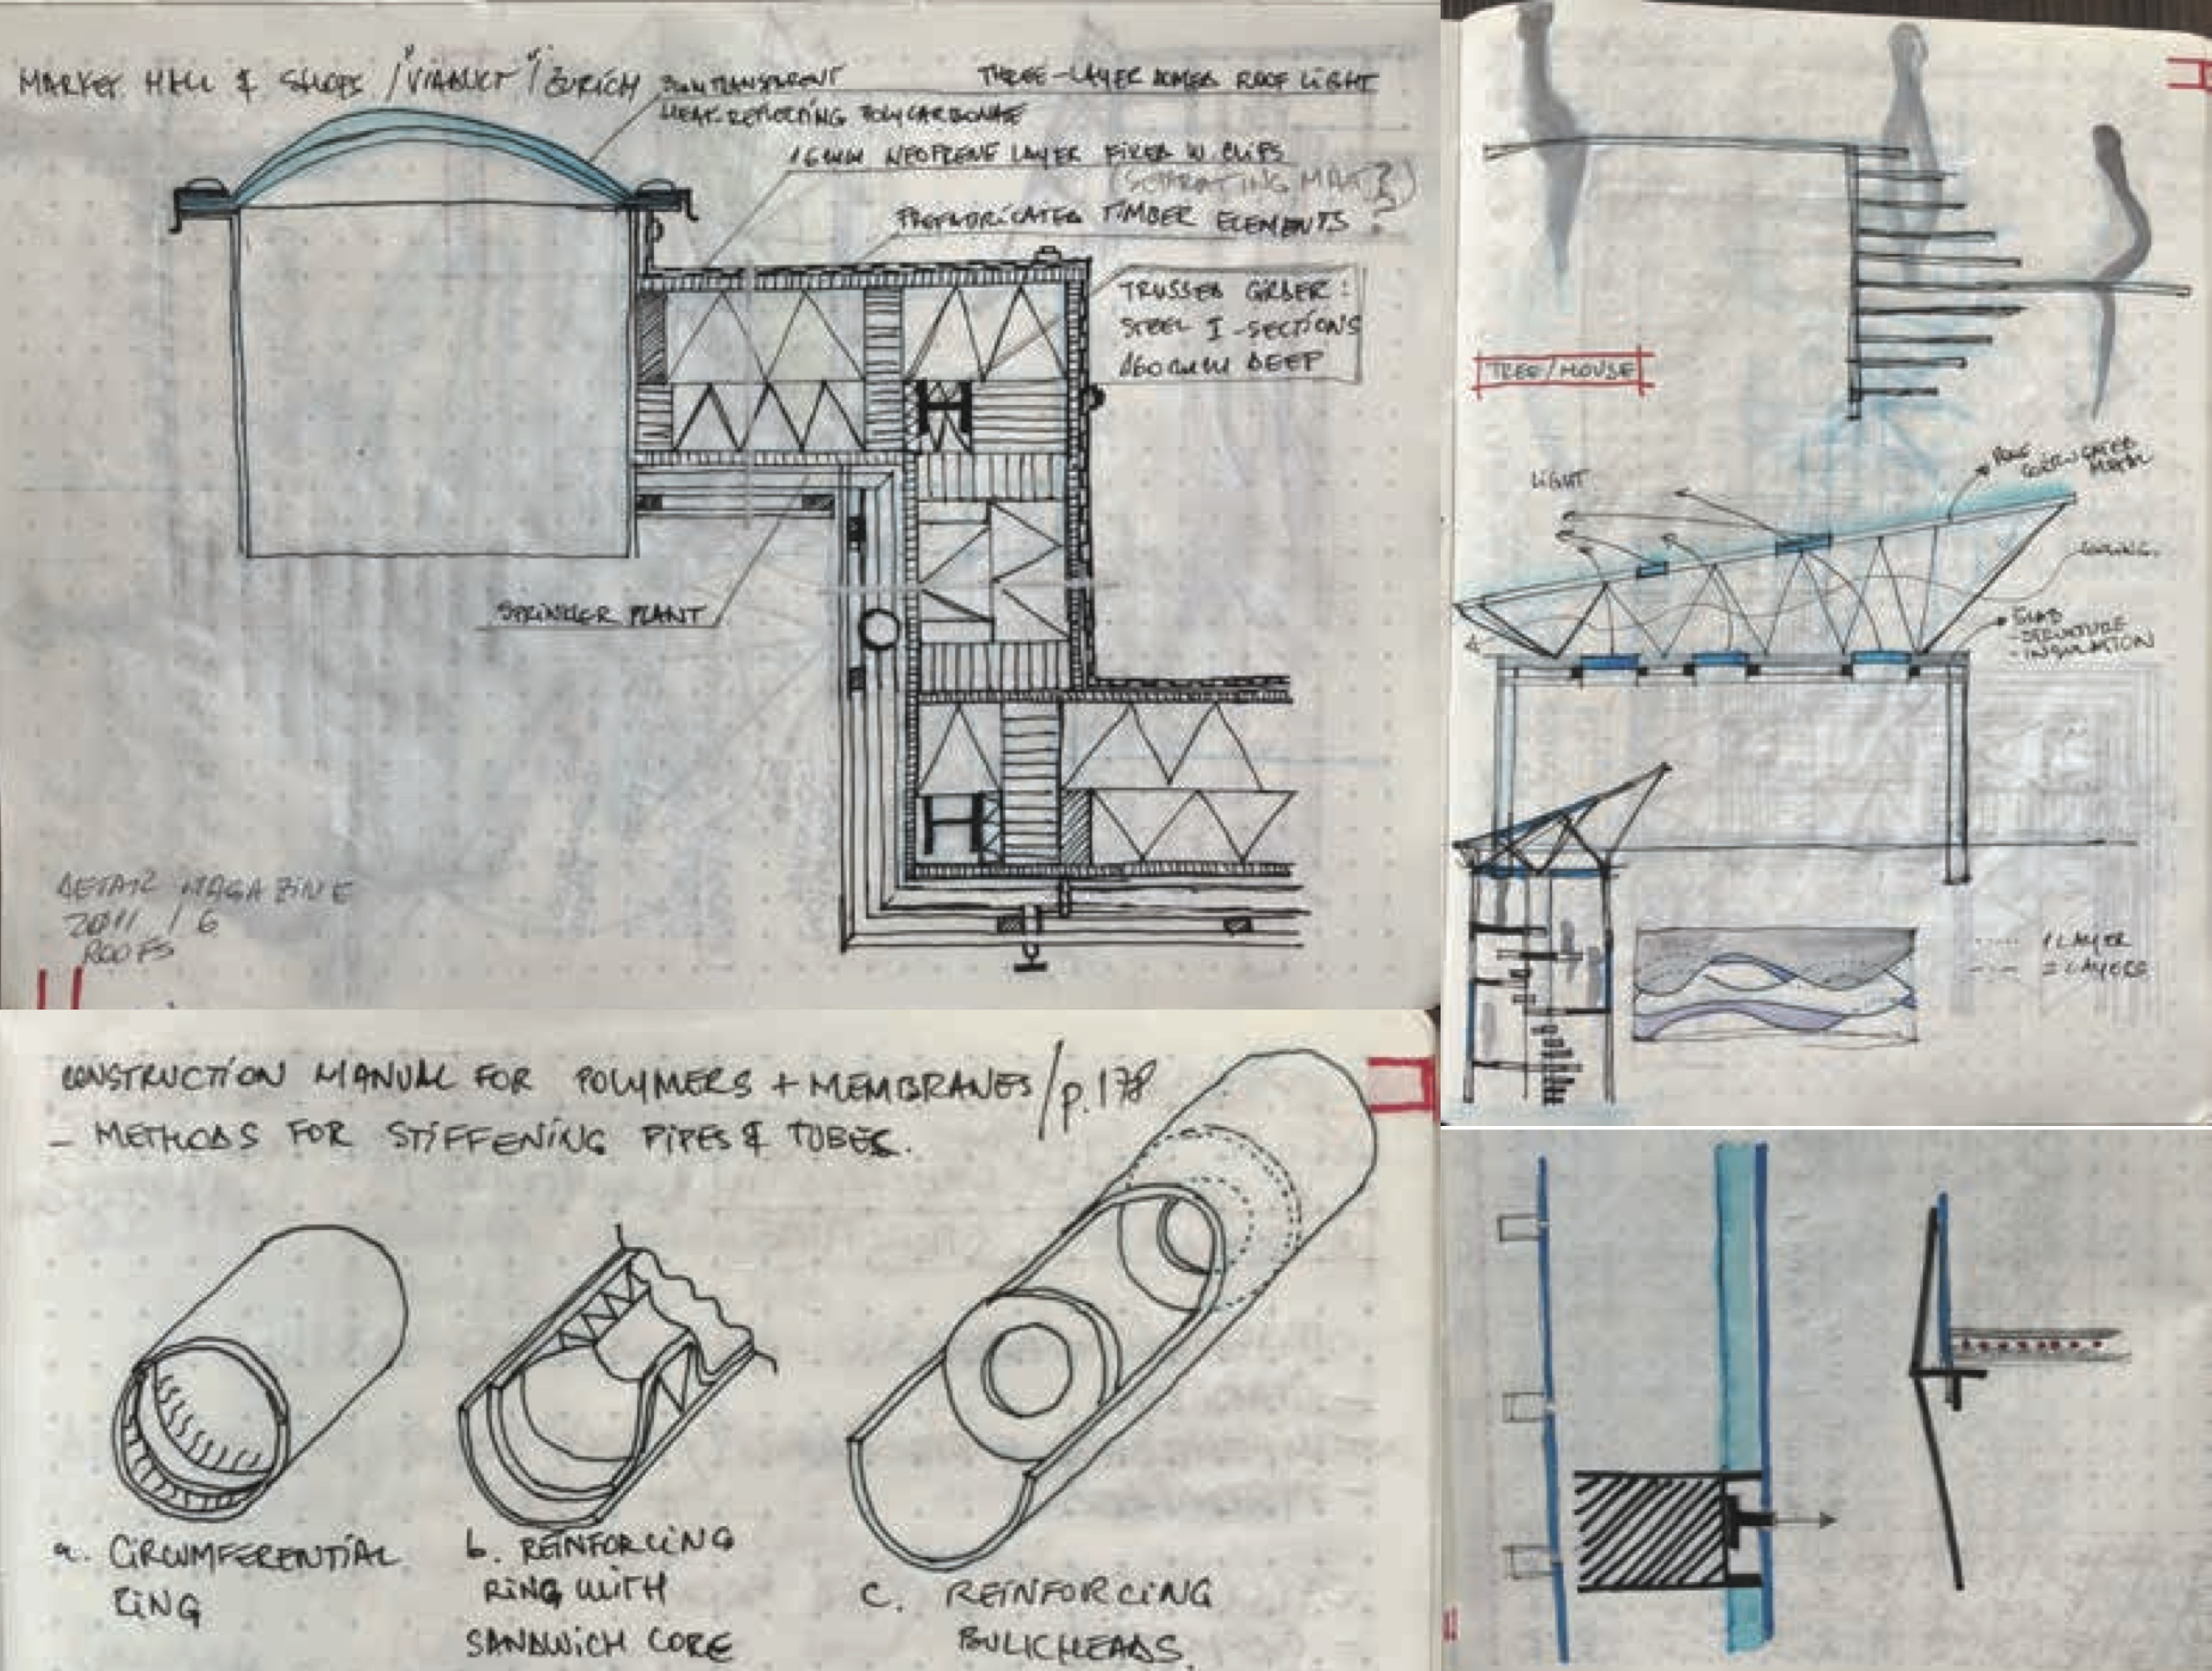 MARKET HALL & SHOPS / "VIADUCT" / ZURICH
3mm TRANSPARENT
HEAT-REFLECTING POLYCARBONATE
THREE-LAYER DOMED ROOF LIGHT
16mm NEOPRENE LAYER FIXED W. CLIPS
(SEPARATING MAT?)
PREFABRICATED TIMBER ELEMENTS ?
TRUSSED GIRDER:
STEEL I-SECTIONS
160mm DEEP
SPRINKLER PLANT
DETAIL MAGAZINE
2011 / 6
ROOFS
CONSTRUCTION MANUAL FOR POLYMERS + MEMBRANES / p. 178
- METHODS FOR STIFFENING PIPES & TUBES.
a. CIRCUMFERENTIAL
RING
b. REINFORCING
RING WITH
SANDWICH CORE
c. REINFORCING
BULKHEADS.
TREE/HOUSE
LIGHT
ROOF
CORRUGATED
METAL
SLAB
- STRUCTURE
- INSULATION
1 LAYER
2 LAYERS